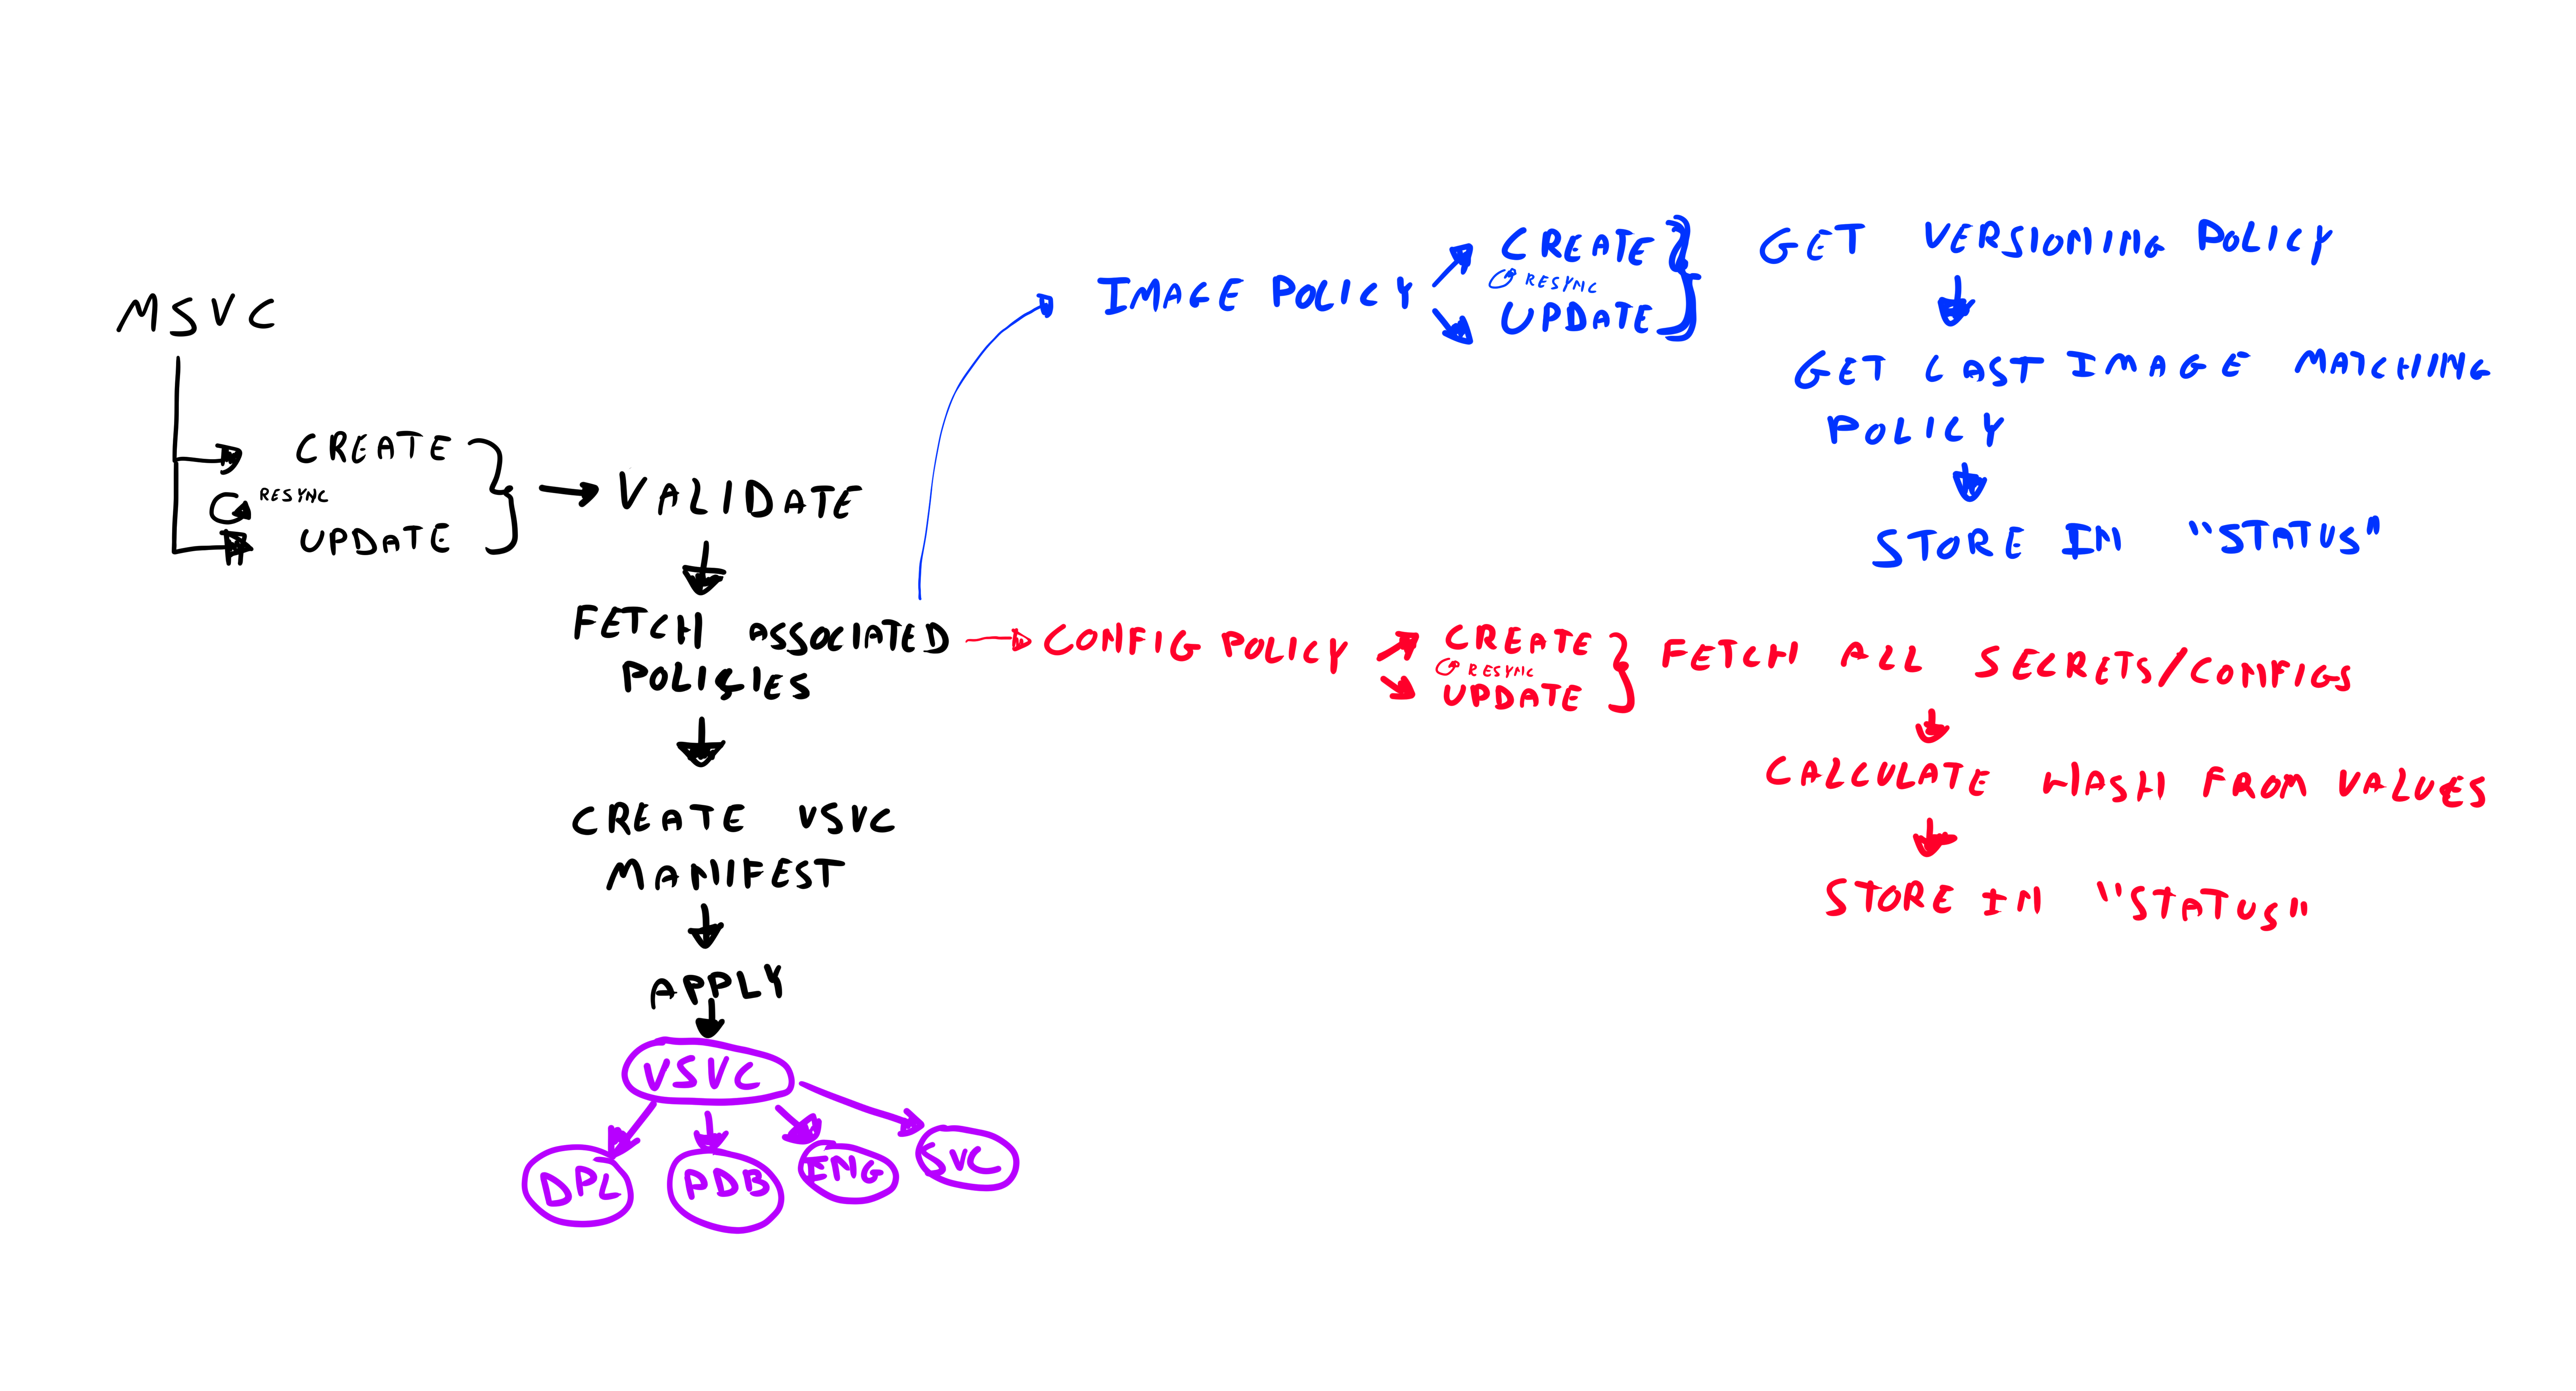 MSVC
CREATE
RESYNC
UPDATE
VALIDATE
FETCH ASSOCIATED
POLICIES
CREATE VSVC
MANIFEST
APPLY
VSVC
DPL
PDB
ING
SVC
IMAGE POLICY
CREATE
RESYNC
UPDATE
GET VERSIONING POLICY
GET LAST IMAGE MATCHING
POLICY
STORE IN "STATUS"
CONFIG POLICY
CREATE
RESYNC
UPDATE
FETCH ALL SECRETS/CONFIGS
CALCULATE HASH FROM VALUES
STORE IN "STATUS"